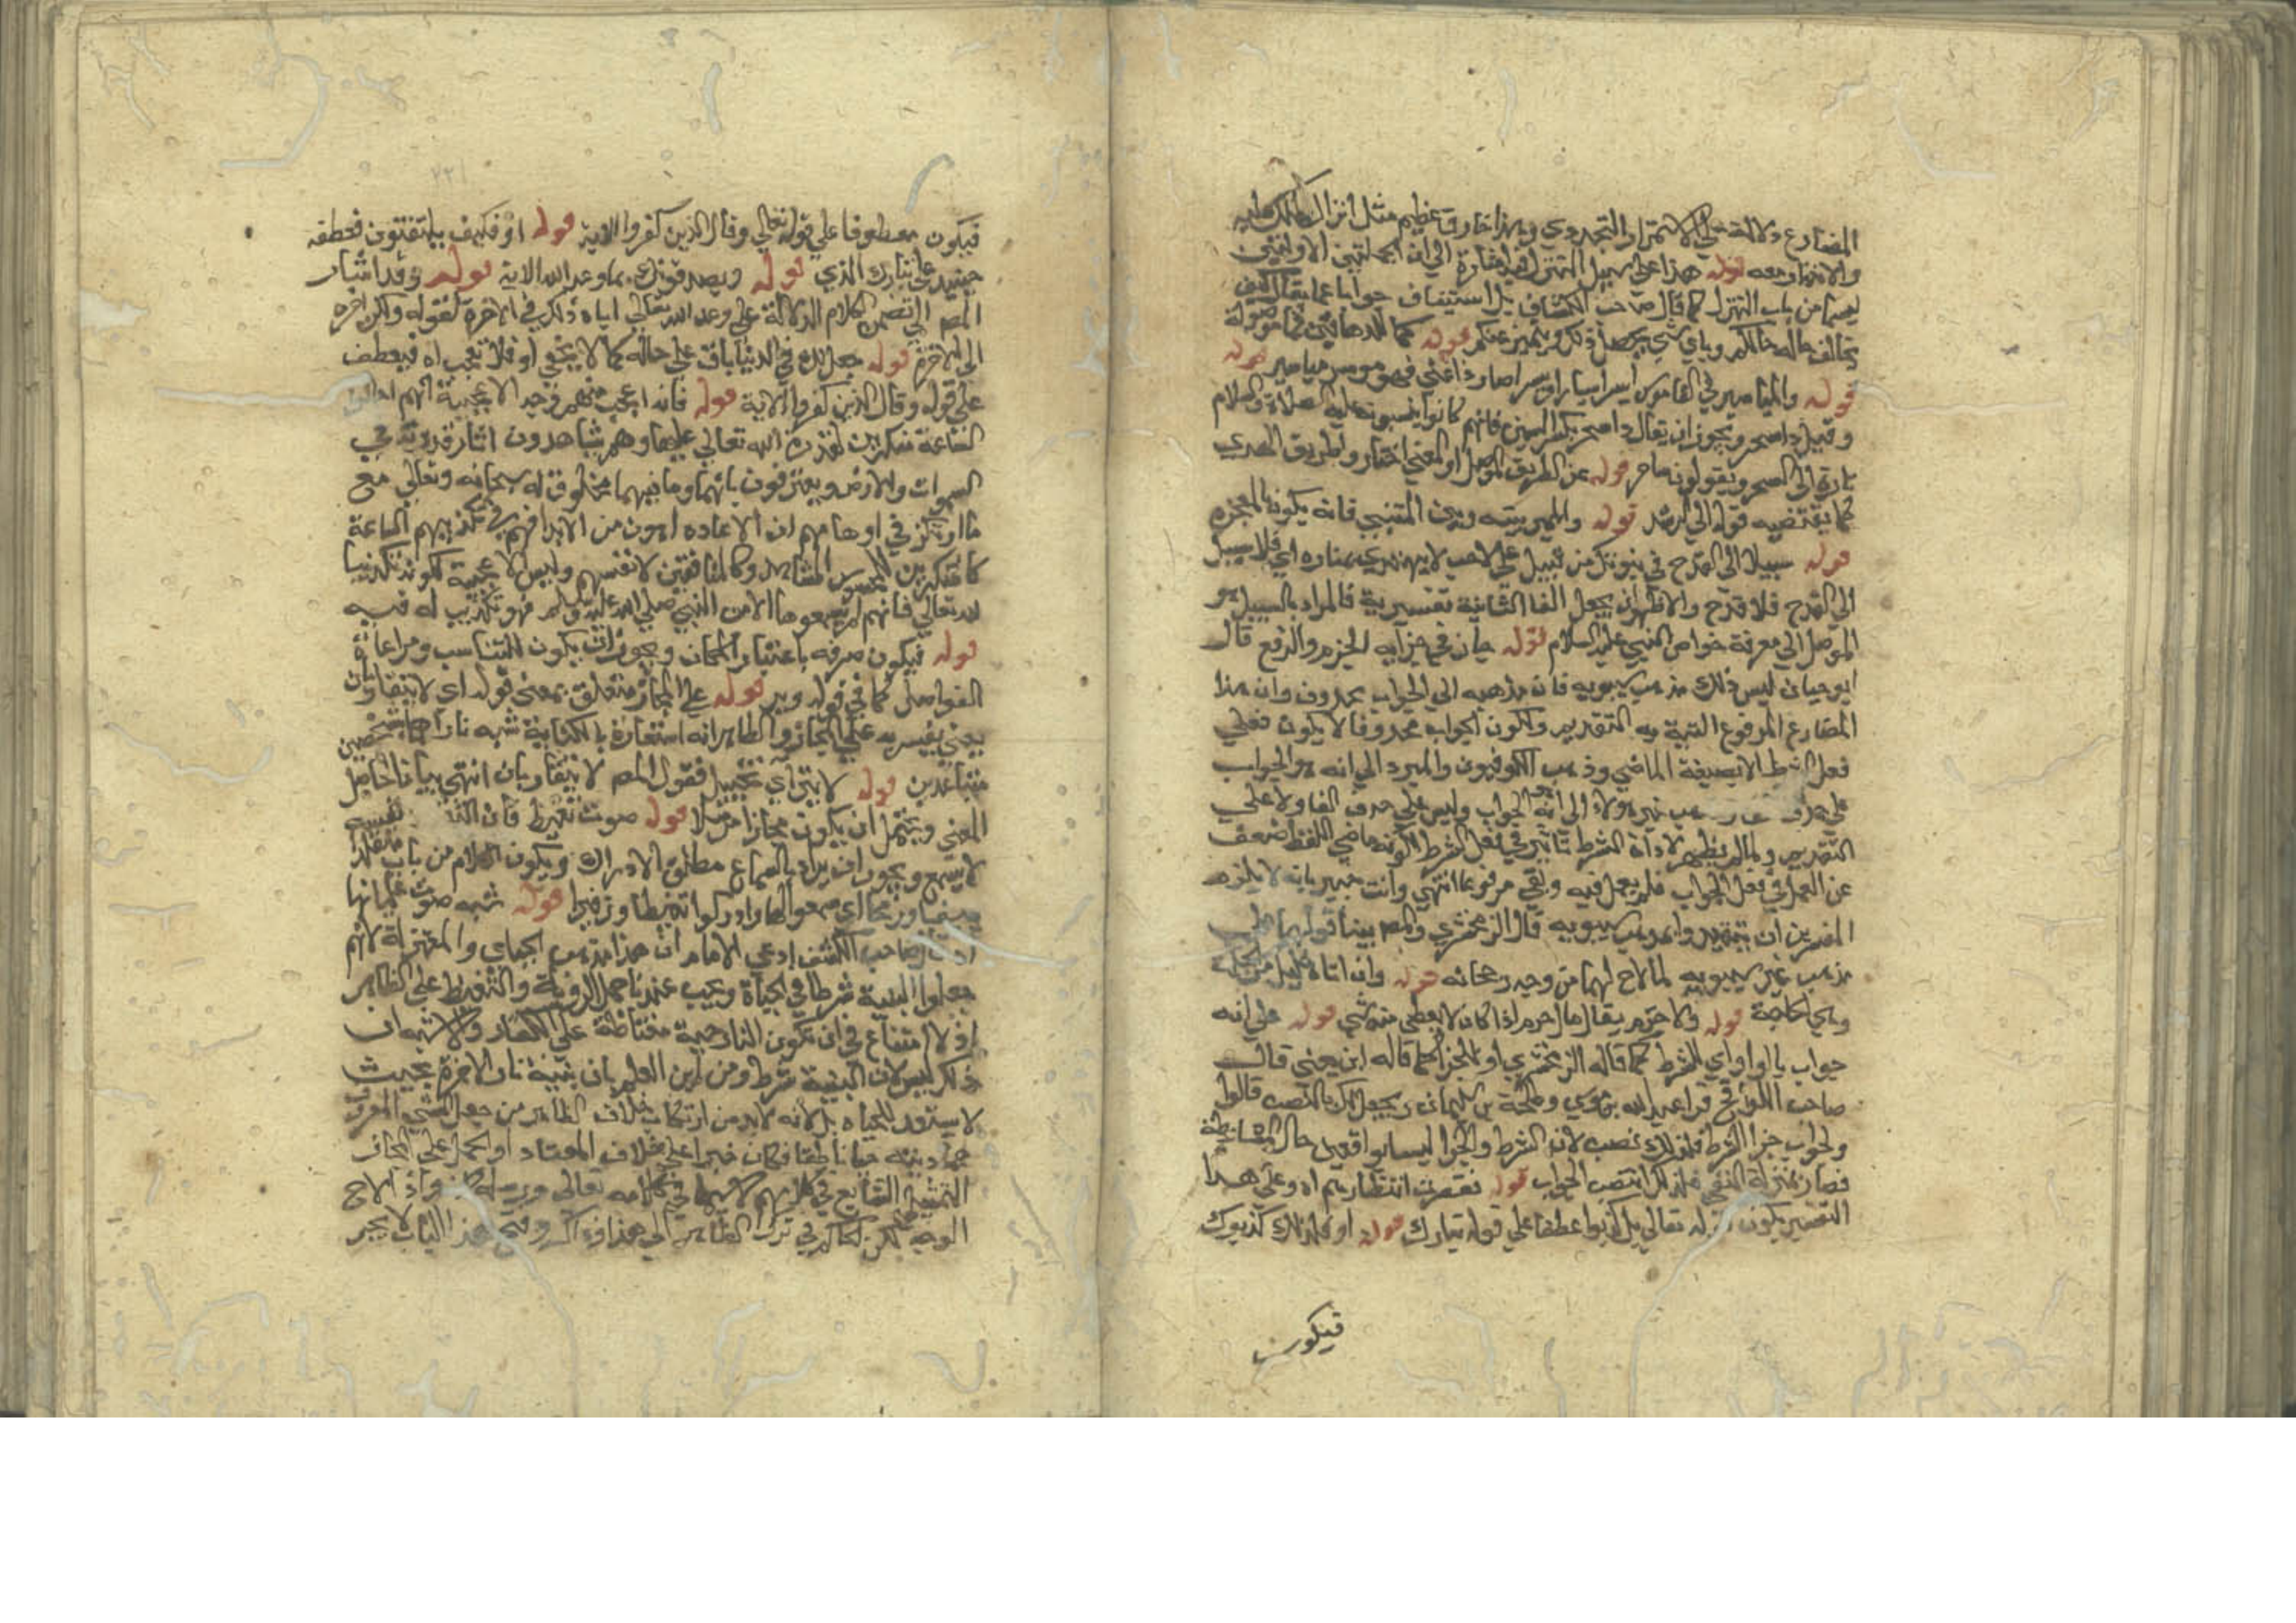 المضارع دلالة على الاستمرار التجددي وهذا خارق عظيم مثل انزال الملك عليه
والانذار معه قوله هذا على سبيل التنزل فيه اشارة الى ان الجملتين الاوليين
ليستا من باب التنزل كما قال صاحب الكشاف بل استيناف جوابا عما يقال كيف
يخالف حاله حالكم وباي شي يحصل ذلك ويتميز عنكم قوله كما للدهاقين فما موصولة
قوله والمياسير في القاموس ايسر ايسارا ويسرا صار ذا غنى فهو موسر مياسير قوله
وقيل ذا سحر ويجوز ان يقال ذا سحر بكسر السين فانهم كانوا ينسبونه عليه الصلاة والسلام
تارة الى السحر ويقولون ساحر قوله عن الطريق الموصل او المعنى اختار واطريق الهدى
كما يقتضيه قوله الى الرشد قوله والمميز بينه وبين المتنبي فانه يكون بالمعجزه
قوله سبيلا الى القدح في نبوتك من قبيل على لاحب لا يهتدى بمناره اي فلا سبيل
الى القدح فلا قدح والاظهر ان يجعل الفا الثانية تفسيرية فالمراد بالسبيل هو
الموصل الى معرفة خواص النبي عليه السلام قوله جاز في جزايه الجزم والرفع قال
ابو حيان ليس ذلك مذهب سيبويه فان مذهبه الى الجواب محذوف وان هذا
المضارع المرفوع النية به التقديم ولكون الجواب محذوفا لا يكون فعلي
فعل الشرط الا بصيغة الماضي وذهب الكوفيون والمبرد الى انه هو الجواب
على حذف الفا وذهب غير هولاء الى انه هو الجواب وليس على حذف الفا ولا على
التقديم ولما لم يظهر لاداة الشرط تاثير في فعل الشرط لكونه ماضي اللفظ ضعف
عن العمل في فعل الجواب فلم يعمل فيه وبقي مرفوعا انتهى وانت خبير بانه لا يلزم
المفسرين ان يتقيدوا بمذهب سيبويه قال الزمخشري والمص بينا قولهما على
مذهب غير سيبويه لما لاح لهما من وجه رجحانه قوله وان اتاه خليل من الخلة
وهي الحاجة قوله ولا حرم يقال مال حرم اذا كان لا يعطى منه شي قوله على انه
جواب بالواو اي للشرط كما قاله الزمخشري او للجزا كما قاله ابن جني قال
صاحب اللوائح قرا عبيد الله بن موسى وطلحة بن سليمان ويجعل لك بالنصب قالوا
والجواب جزا الشرط فلذلك نصب لان الشرط والجزا ليسا بواقعين حال المشارطة
فصار بمنزلة النفي فلذلك انتصب الجواب قوله فقصرت انتظارهم اه وعلى هذا
التفسير يكون قوله تعالى بل كذبوا عطفا على قوله تبارك قوله او فلذلك كذبوك
فيكون
فيكون معطوفا على قوله تعالى وقال الذين كفروا الاية قوله او فكيف يلتفتون فعطفه
حينيذ على تبارك الذي قوله ويصدقونك بما وعد الله الاية قوله وقد اشار
المص الى تضمن الكلام الدلالة على وعد الله تعالى اياه ذلك في الاخرة لقوله ولكن اخره
الى الاخرة قوله جعل لك في الدنيا باق على حاله كما لا يخفى او فلا تعجب اه فيعطف
على قوله وقال الذين كفروا الاية قوله فانه اعجب منهم وجه الاعجبية انهم
الساعة منكرين لقدرة الله تعالى عليها وهم يشاهدون اثار قدرته في
السموات والارض ويعترفون بانهما وما فيهما مخلوق له سبحانه وتعالى مع
ما ارتكز في اوهامهم ان الاعاده اهون من الابدا فهم في تكذيبهم الساعة
كالمنكرين للمحسوس المشاهد وكالمناقضين لانفسهم وليس الاعجبية لكونه تكذيبا
لله تعالى فانهم لم يسمعوها الا من النبي صلى الله عليه وسلم فهو تكذيب له فيه
قوله فيكون صرفه باعتبار المكان ويجوز ان يكون للتناسب ومراعاة
الفواصل كما في قوله وير قوله على المجاز متعلق بمعنى قوله اي لا يتقاربان
يعني تفسيره على المجاز والظاهر انه استعارة بالكناية شبه ناراهما بشخصين
متباعدين قوله لا يترااي تخييل فقول المص لا يتقاربان انتهى بيانا لحاصل
المعنى ويحتمل ان يكون مجازا مرسلا قوله صوت تغيظ فان الغيظ نفسه
لا يسمع ويجوز ان يراد بالسماع مطلق الادراك ويكون الكلام من باب متقلدا
سيفا ورمحا اي سمعوا لها وادركوا تغيظا وزفيرا قوله شبه صوت غليانها
صاحب الكشف ادعى الامام ان هذا مذهب الجباي والمعتزلة لانهم
جعلوا البنية شرطا في الحياة ويجب عندنا حمل الروية والتغيظ على الظاهر
اذ لا امتناع في ان تكون النار حية مغتاظة على الكفار والاشبه ان
ذلك ليس لان البنية شرط ومن اين العلم بان بنية نار الاخرة بحيث
لا يستعد للحياه بل لانه لا بد من ارتكاب خلاف الظاهر من جعل الشي المعروف
جماديته حيا ناطقا فكان خبرا على خلاف المعتاد او الحمل على المجاز
التمثيلي الشايع في كلامهم لا سيما في كلامه تعالى ورسله واذ لاح
الوجه فكن الحاكم في ترك الظاهر الى هذا او ذاك وفتح هذا الباب لا يجر